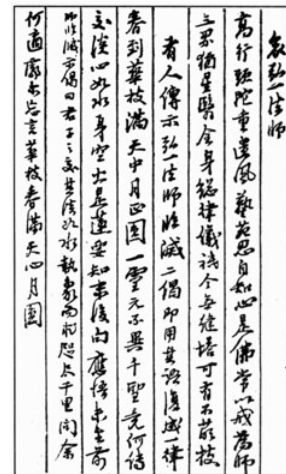 哀弘一法師
高行頭陀重遺風藝苑思自知心是佛常以戒為師
三界猶星翳全身總律儀祇今無縫塔可有不萌枝
有人傳示弘一法師臨滅二偈即用其語復成一律
春到華枝滿天中月正圓一靈元不異千聖竟何傳
交淡心如水身空火是蓮要知末後句應悟未生前
師臨滅示偈曰君子之交其淡如水執象而求咫尺千里問余
何適廓爾忘言華枝春滿天心月圓